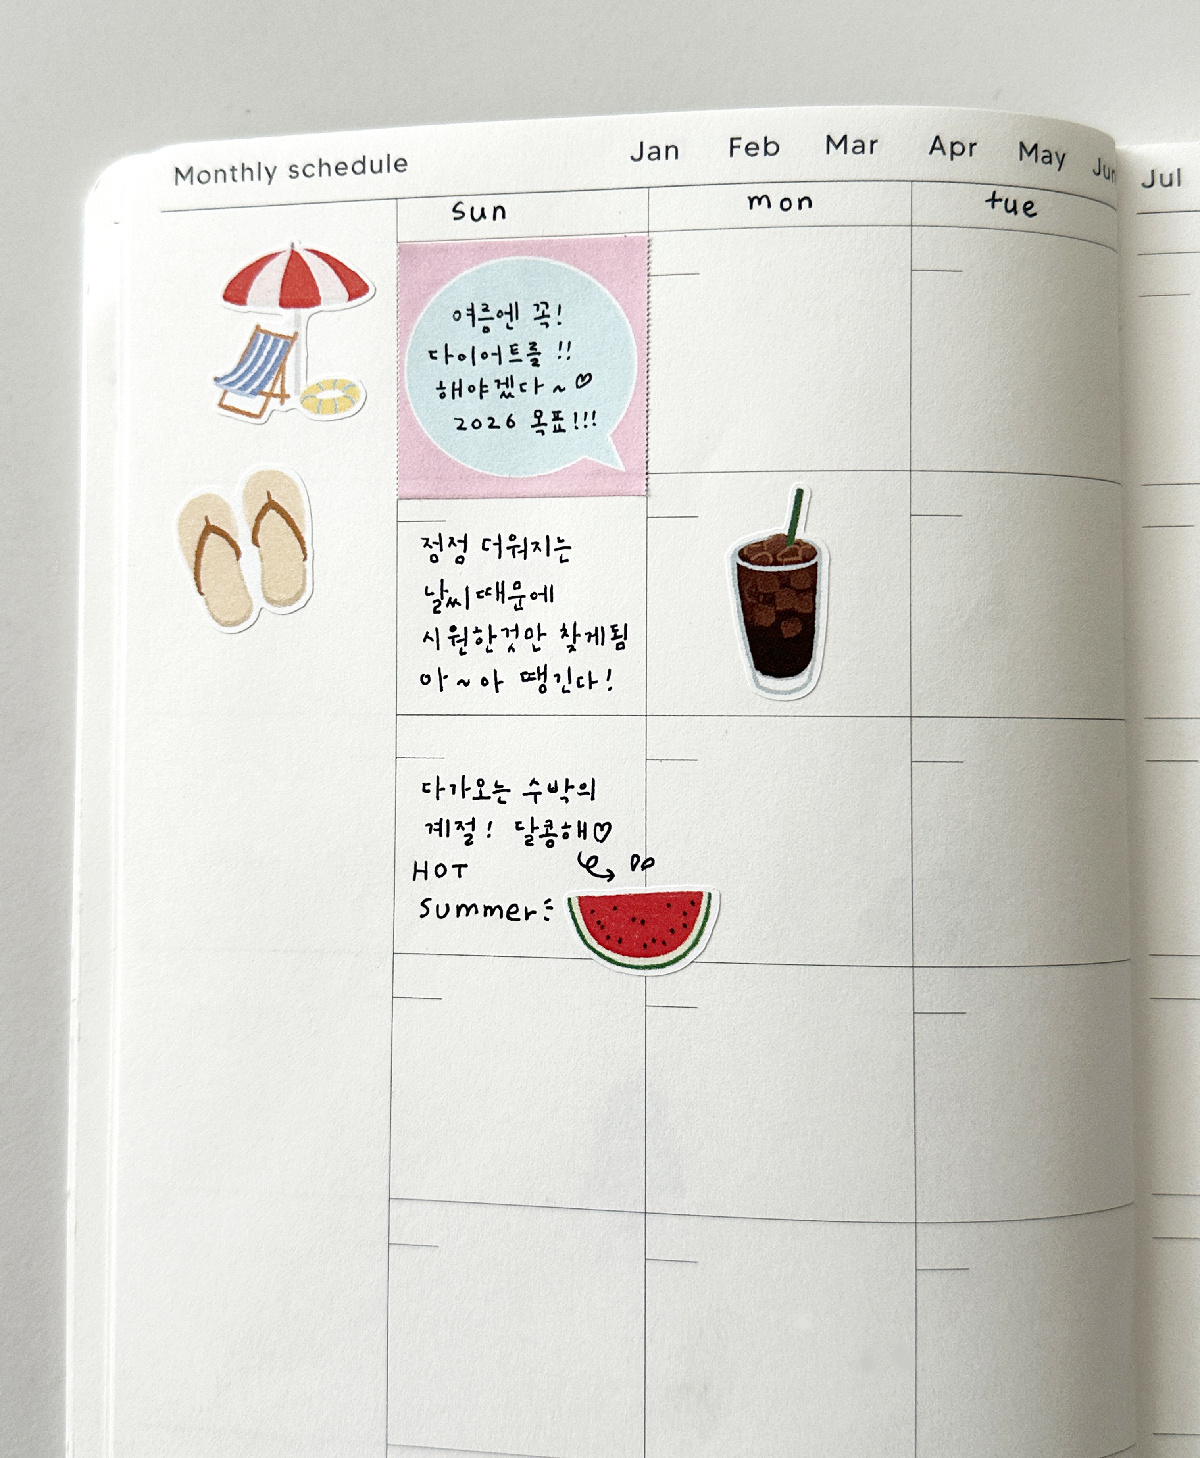 Monthly schedule
Jan Feb Mar Apr May Jun Jul
sun mon tue
여름엔 꼭!
다이어트를 !!
해야겠다 ~ ♡
2026 목표!!!
점점 더워지는
날씨 때문에
시원한것만 찾게됨
아~아 땡긴다!
다가오는 수박의
계절! 달콩해♡
HOT
summer